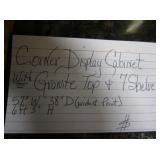 Corner Display Cabinet
with Granite Top & 7 Shelve
57" W, 38" D (widest Point)
6ft 3" H
$